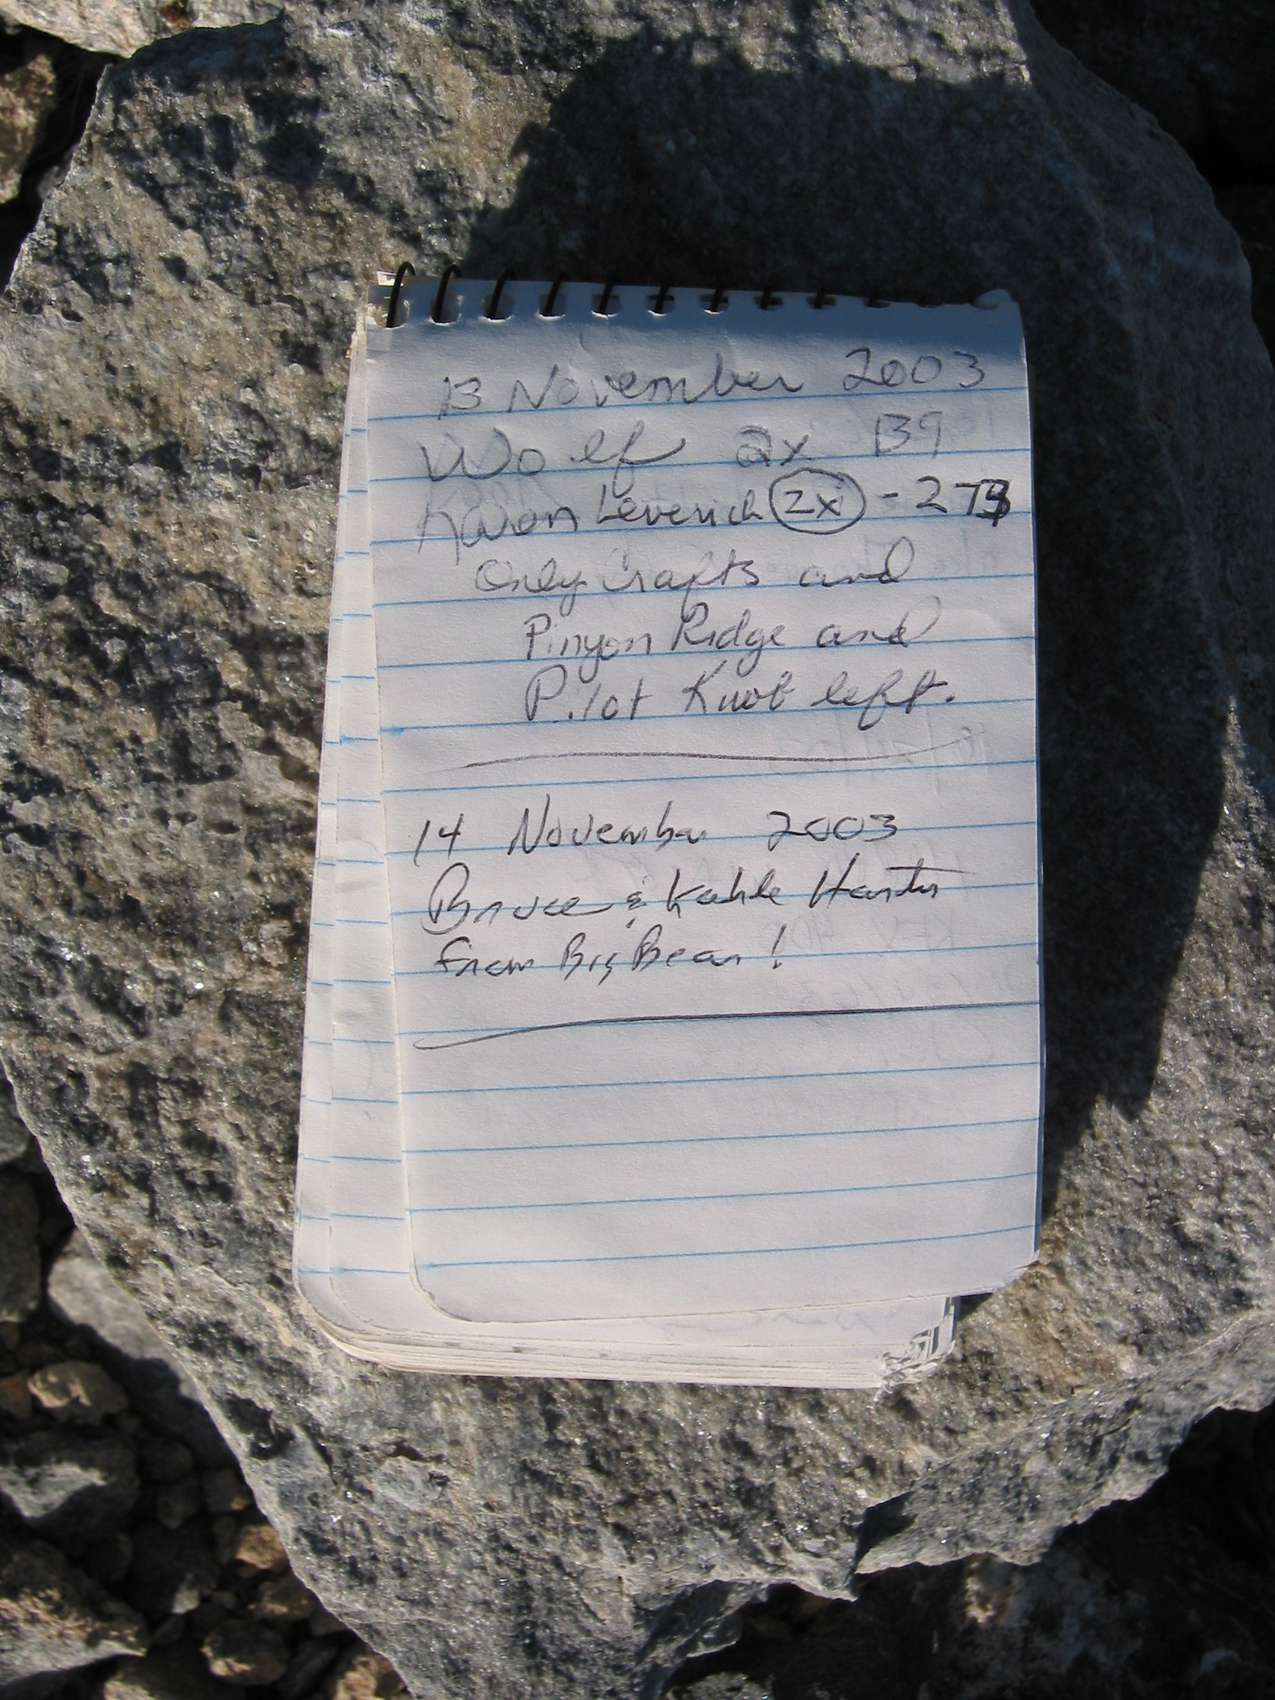 13 November 2003
Wolf 2x 139
Leverich 2x - 27
Only Crafts and
Pinyon Ridge and
Pilot Knob left.
14 November 2003
Bruce & Kahle
from Big Bear!